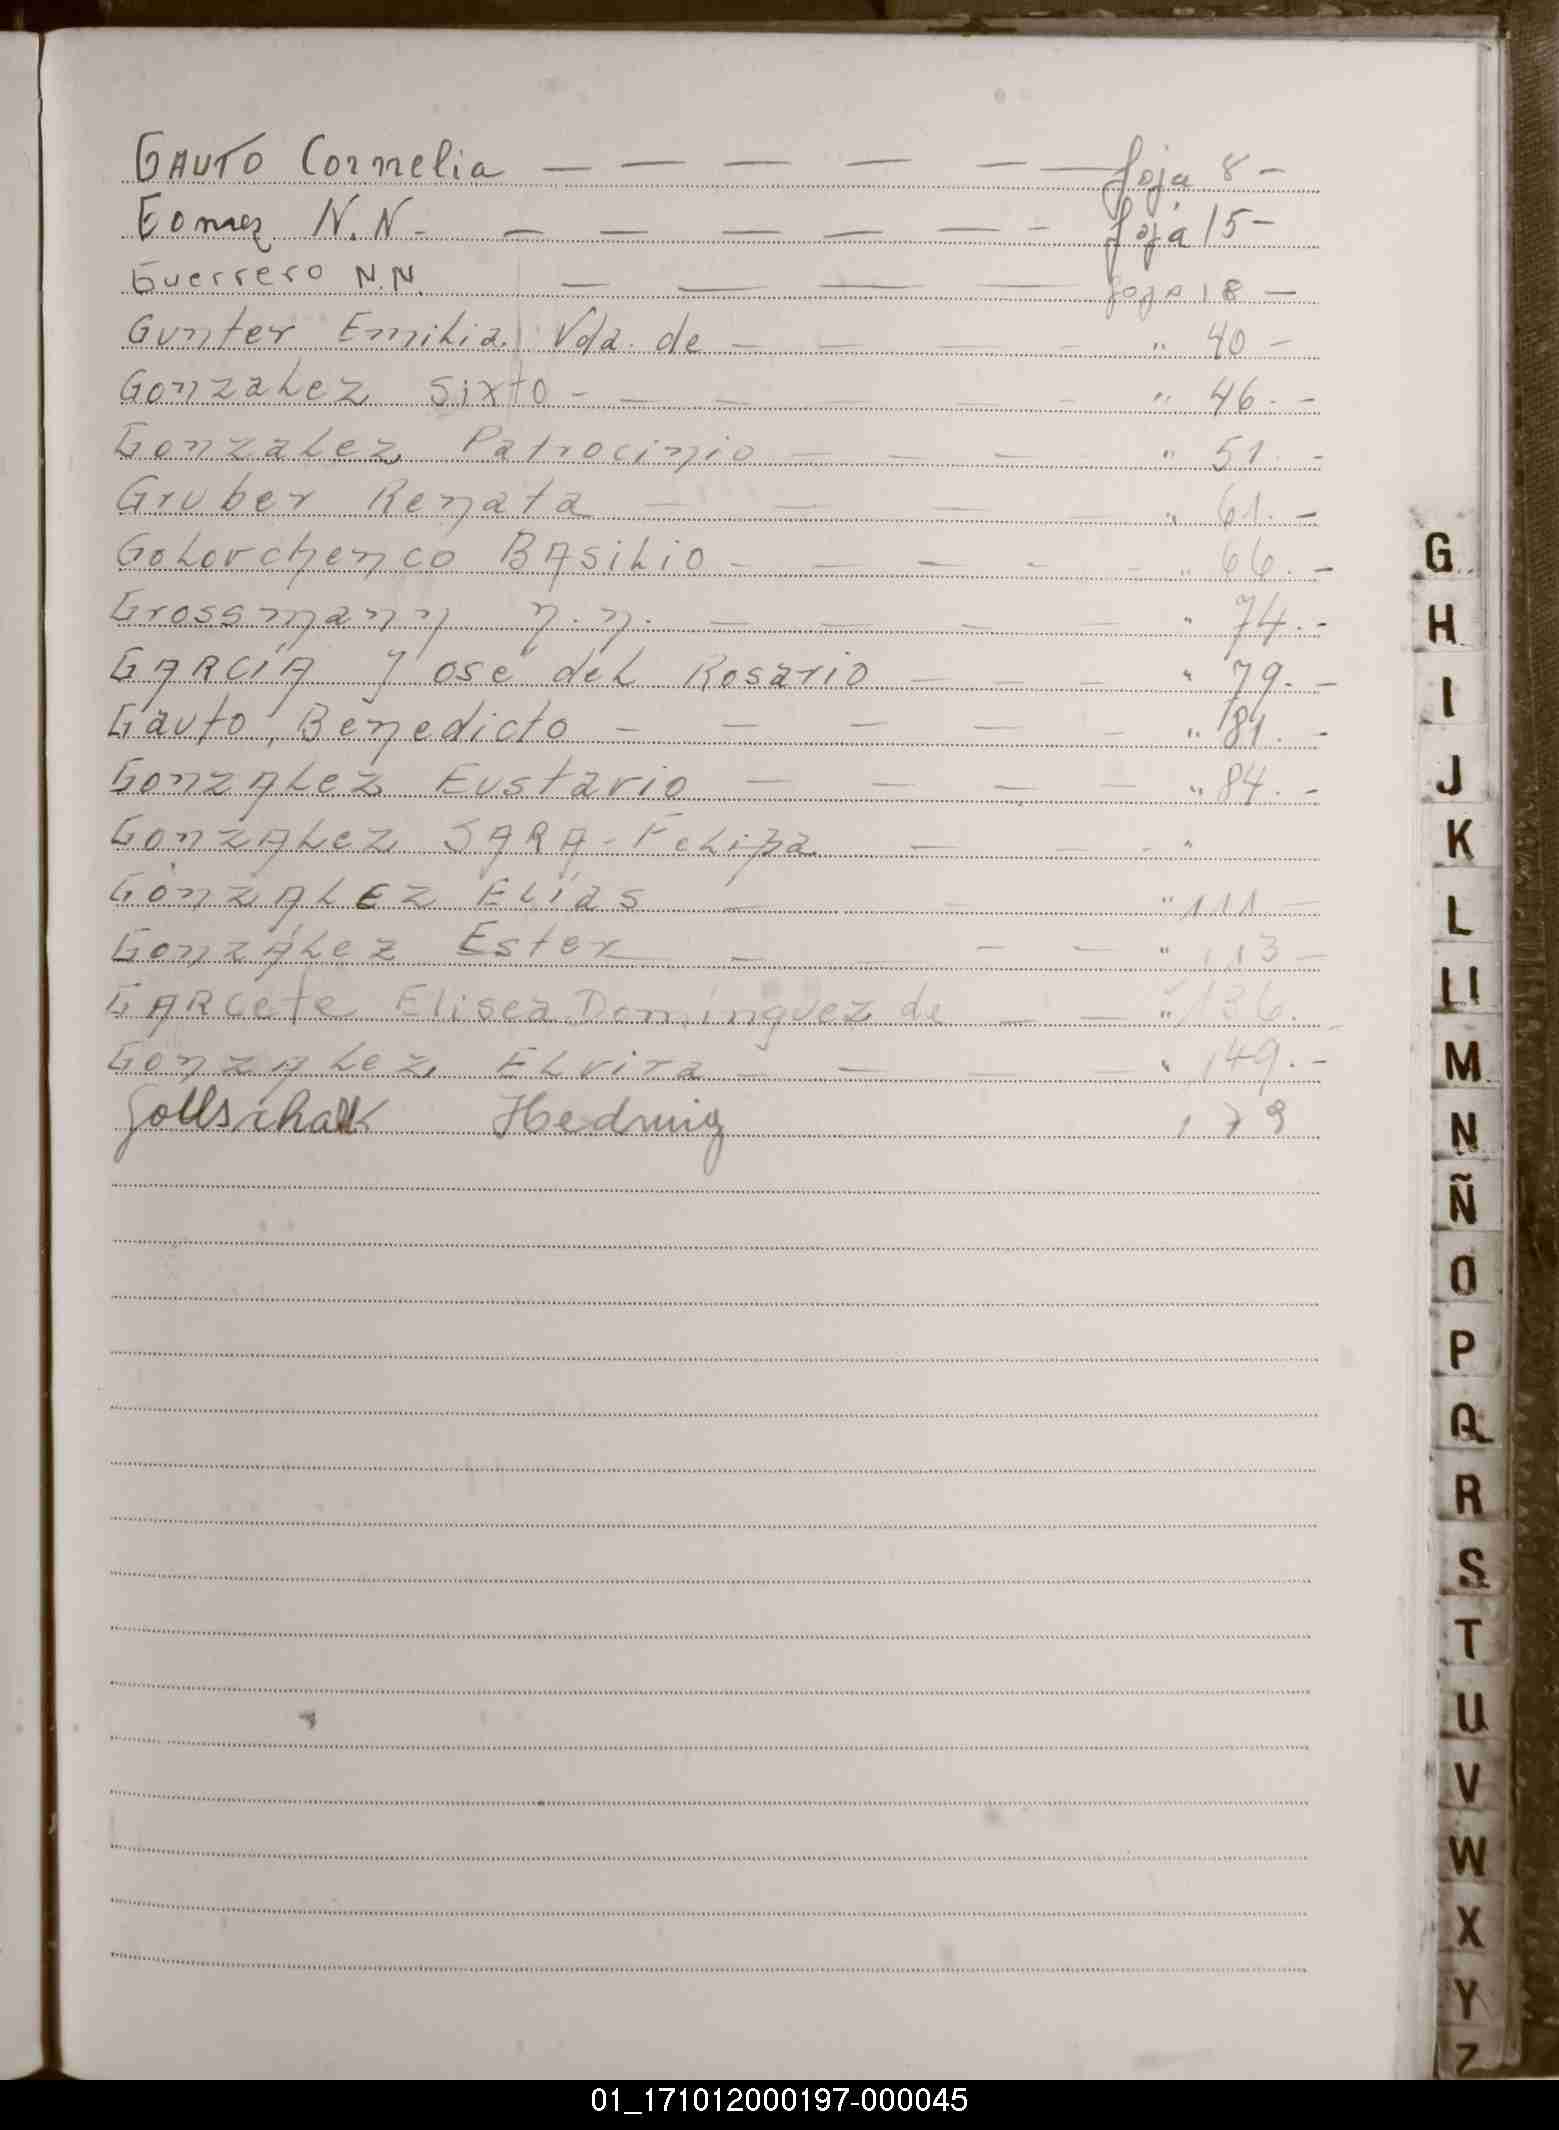 GAUTO Cornelia — — — — — — foja 8 -
Gomez N.N - — — — — — - foja 15 -
Guerrero N.N. — — — — foja 18 —
Gunter Emilia Vda. de — — — — " 40 -
Gonzalez Sixto - — — — — " 46. -
Gonzalez Patrocinio — — — — " 51. -
Gruber Renata — — — — " 61. -
Golovchenco BAsilio - — — - — " 66. -
Grossmann n.n. — — — — " 74. -
GARCÍA Jose del Rosario — — — " 79. -
Gauto, Benedicto — — — — — " 81. -
GonzAlez Eustacio — — — — " 84. -
GonzAlez SARA - Felipa — — - "
GonzALEz Elías — — — " 111 —
GonzÁlez Ester — — — — " 113 —
GARcete Elisea Domínguez de — — " 136. -
GonzAlez Elvira — — — — " 149. -
Gottschalk Hedwig 179
G
H
I
J
K
L
Ll
M
N
Ñ
O
P
Q
R
S
T
U
V
W
X
Y
Z
01_171012000197-000045